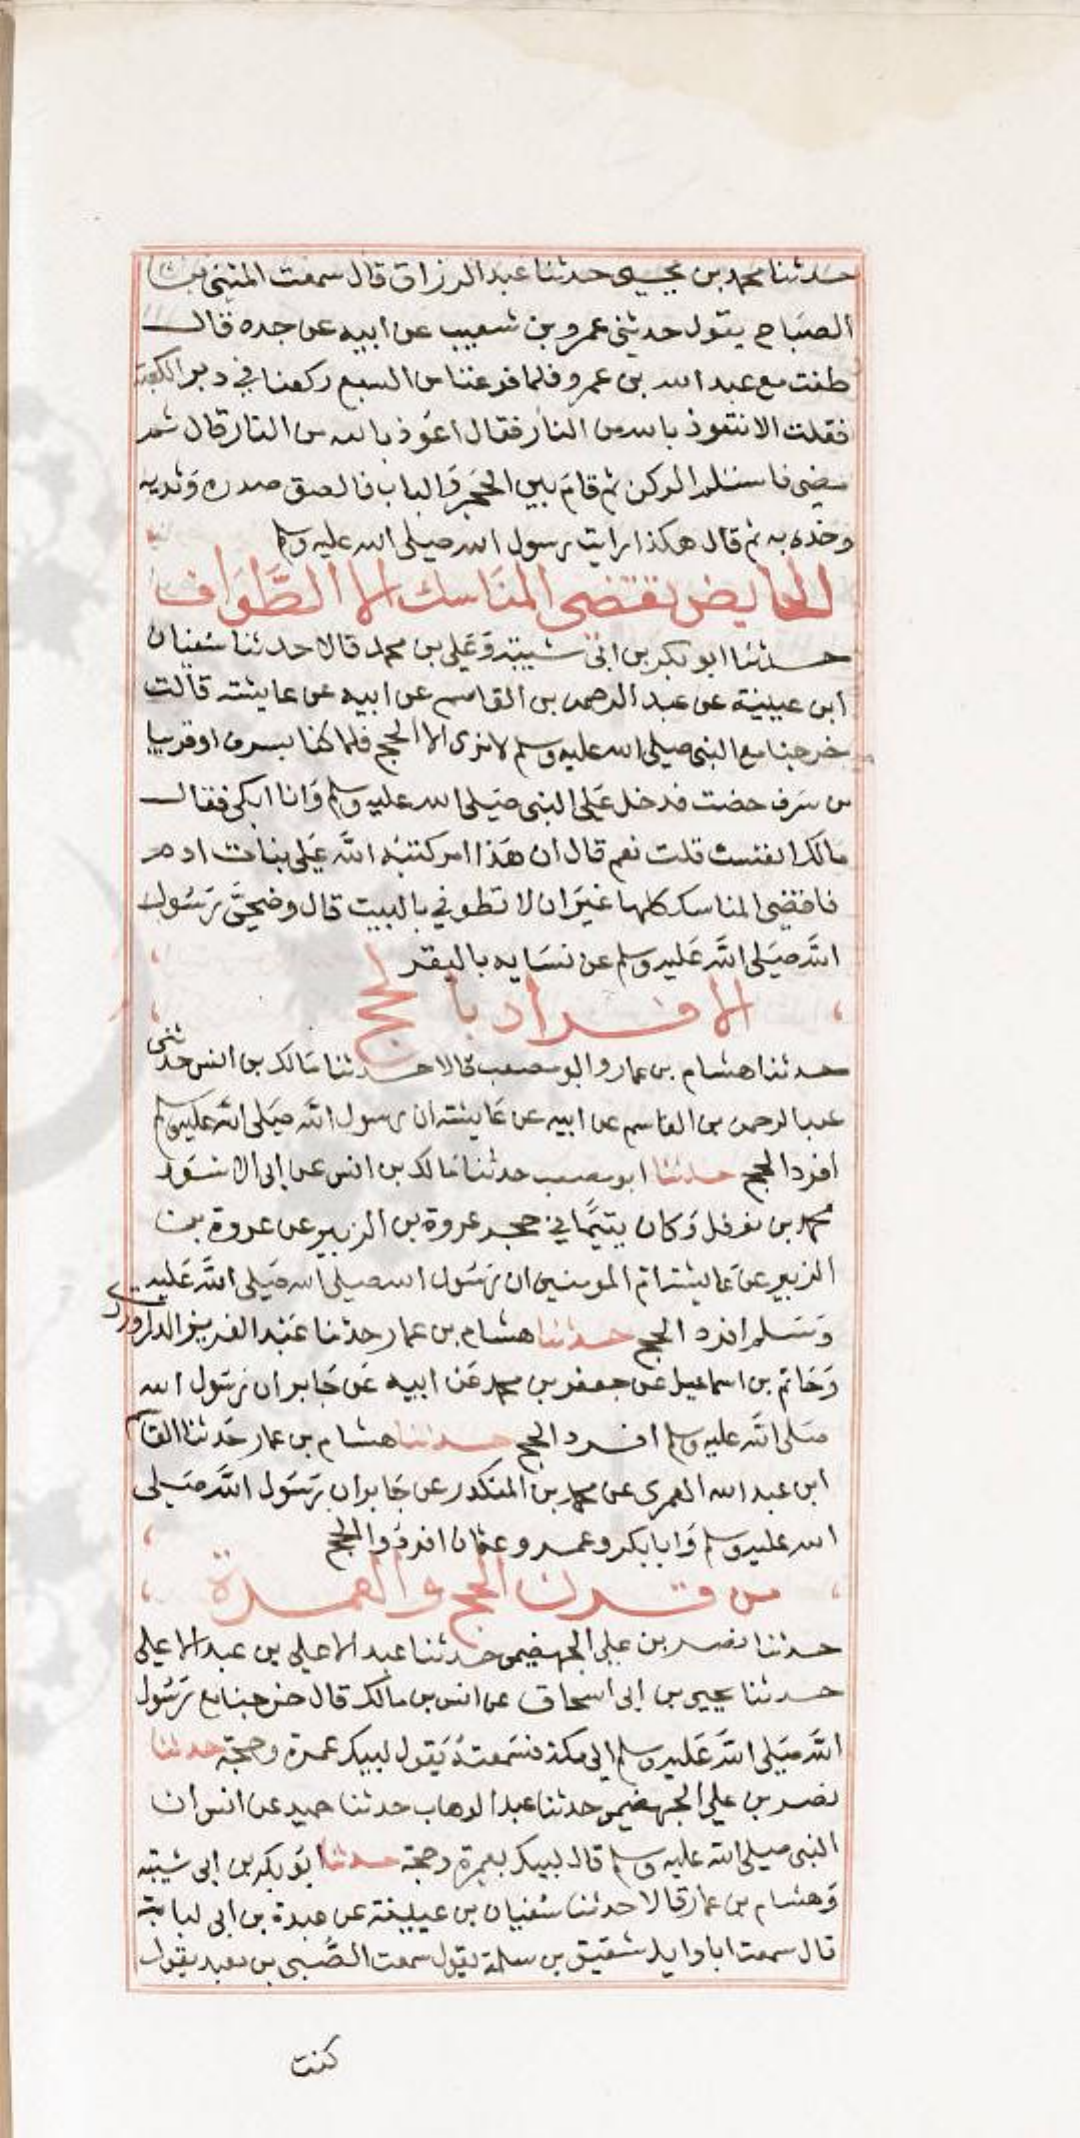 حدثنا محمد بن يحيى حدثنا عبد الرزاق قال سمعت المثنى بن
الصباح يقول حدثني عمرو بن شعيب عن ابيه عن جده قال
طفت مع عبد الله بن عمرو فلما فرغنا من السبع ركعنا في دبر الكعبة
فقلت الا نتعوذ بالله من النار فقال اعوذ بالله من النار قال ثم
مضى فاستلم الركن ثم قام بين الحجر والباب فالصق صدره وثديه
وخده به ثم قال هكذا رايت رسول الله صلى الله عليه وسلم
الحايض تقضى المناسك الا الطواف
حدثنا ابو بكر بن ابى شيبة وعلي بن محمد قالا حدثنا سفيان
ابن عيينة عن عبد الرحمن بن القاسم عن ابيه عن عايشة قالت
خرجنا مع النبى صلى الله عليه وسلم لا نرى الا الحج فلما كنا بسرف او قريبا
من سرف حضت فدخل على النبى صلى الله عليه وسلم وانا ابكى فقال
مالك انفست قلت نعم قال ان هذا امر كتبه الله على بنات ادم
فاقضى المناسك كلها غير ان لا تطوفي بالبيت قال وضحى رسول
الله صلى الله عليه وسلم عن نسايه بالبقر
الافراد بالحج
حدثنا هشام بن عمار وابو مصعب قالا حدثنا مالك بن انس حدثنى
عبد الرحمن بن القاسم عن ابيه عن عايشة ان رسول الله صلى الله عليه وسلم
افرد الحج حدثنا ابو مصعب حدثنا مالك بن انس عن ابى الاسود
محمد بن نوفل وكان يتيما في حجر عروة بن الزبير عن عروة بن
الزبير عن عايشة ام المومنين ان رسول الله صلى الله صلى الله عليه
وسلم افرد الحج حدثنا هشام بن عمار حدثنا عبد العزيز الدراوردى
وحاتم بن اسماعيل عن جعفر بن محمد عن ابيه عن جابر ان رسول الله
صلى الله عليه وسلم افرد الحج حدثنا هشام بن عمار حدثنا القاسم
ابن عبد الله العمرى عن محمد بن المنكدر عن جابر ان رسول الله صلى
الله عليه وسلم وابا بكر وعمر وعثمان افردوا الحج
من قرن الحج والعمرة
حدثنا نصر بن علي الجهضمى حدثنا عبد الاعلى بن عبد الاعلى
حدثنا يحيى بن ابى اسحاق عن انس بن مالك قال خرجنا مع رسول
الله صلى الله عليه وسلم الى مكة فسمعته يقول لبيك عمرة وحجة حدثنا
نصر بن علي الجهضمى حدثنا عبد الوهاب حدثنا حميد عن انس ان
النبى صلى الله عليه وسلم قال لبيك بعمرة وحجة حدثنا ابو بكر بن ابى شيبة
وهشام بن عمار قالا حدثنا سفيان بن عيينة عن عبدة بن ابى لبابة
قال سمعت ابا وايل شقيق بن سلمة يقول سمعت الصبى بن معبد يقول
كنت